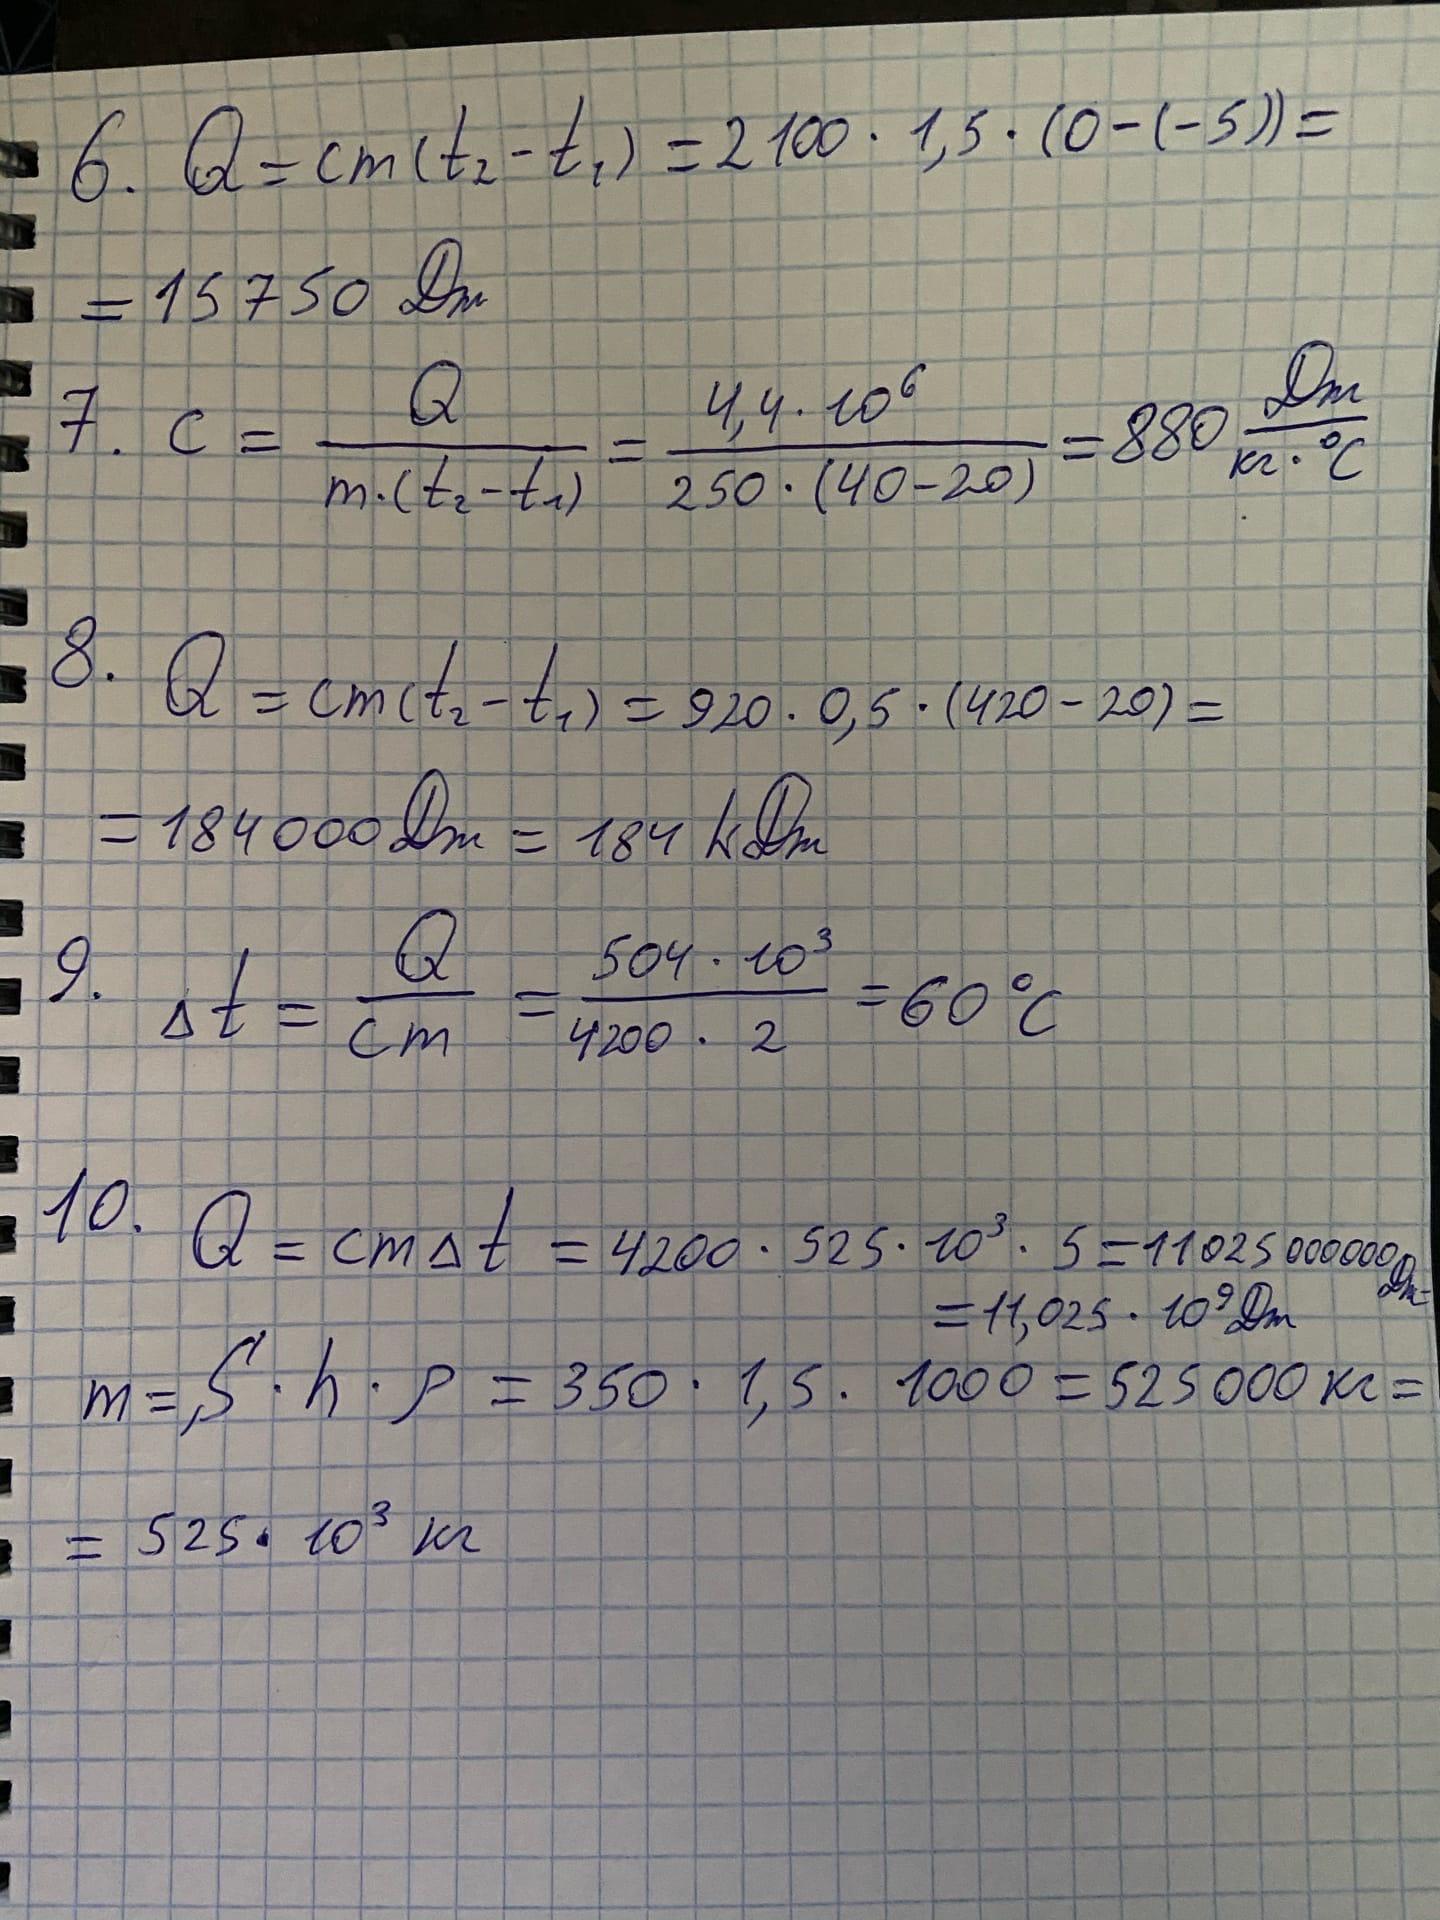 6. Q = cm(t₂ - t₁) = 2100 · 1,5 · (0 - (-5)) =
= 15750 Дж
7. c = Q / (m · (t₂ - t₁)) = 4,4 · 10⁶ / (250 · (40 - 20)) = 880 Дж / (кг · °C)
8. Q = cm(t₂ - t₁) = 920 · 0,5 · (420 - 20) =
= 184000 Дж = 184 кДж
9. Δt = Q / cm = 504 · 10³ / (4200 · 2) = 60 °C
10. Q = cmΔt = 4200 · 525 · 10³ · 5 = 11025000000 Дж =
= 11,025 · 10⁹ Дж
m = S · h · ρ = 350 · 1,5 · 1000 = 525000 кг =
= 525 · 10³ кг